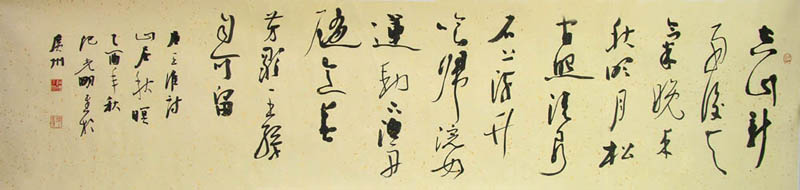 空山新
雨後天
氣晚来
秋明月松
间照清泉
石上流竹
喧歸浣女
蓮動下漁舟
隨意春
芳歇王孫
自可留
唐王維詩
山居秋暝
乙酉年秋
纪光明書於
州